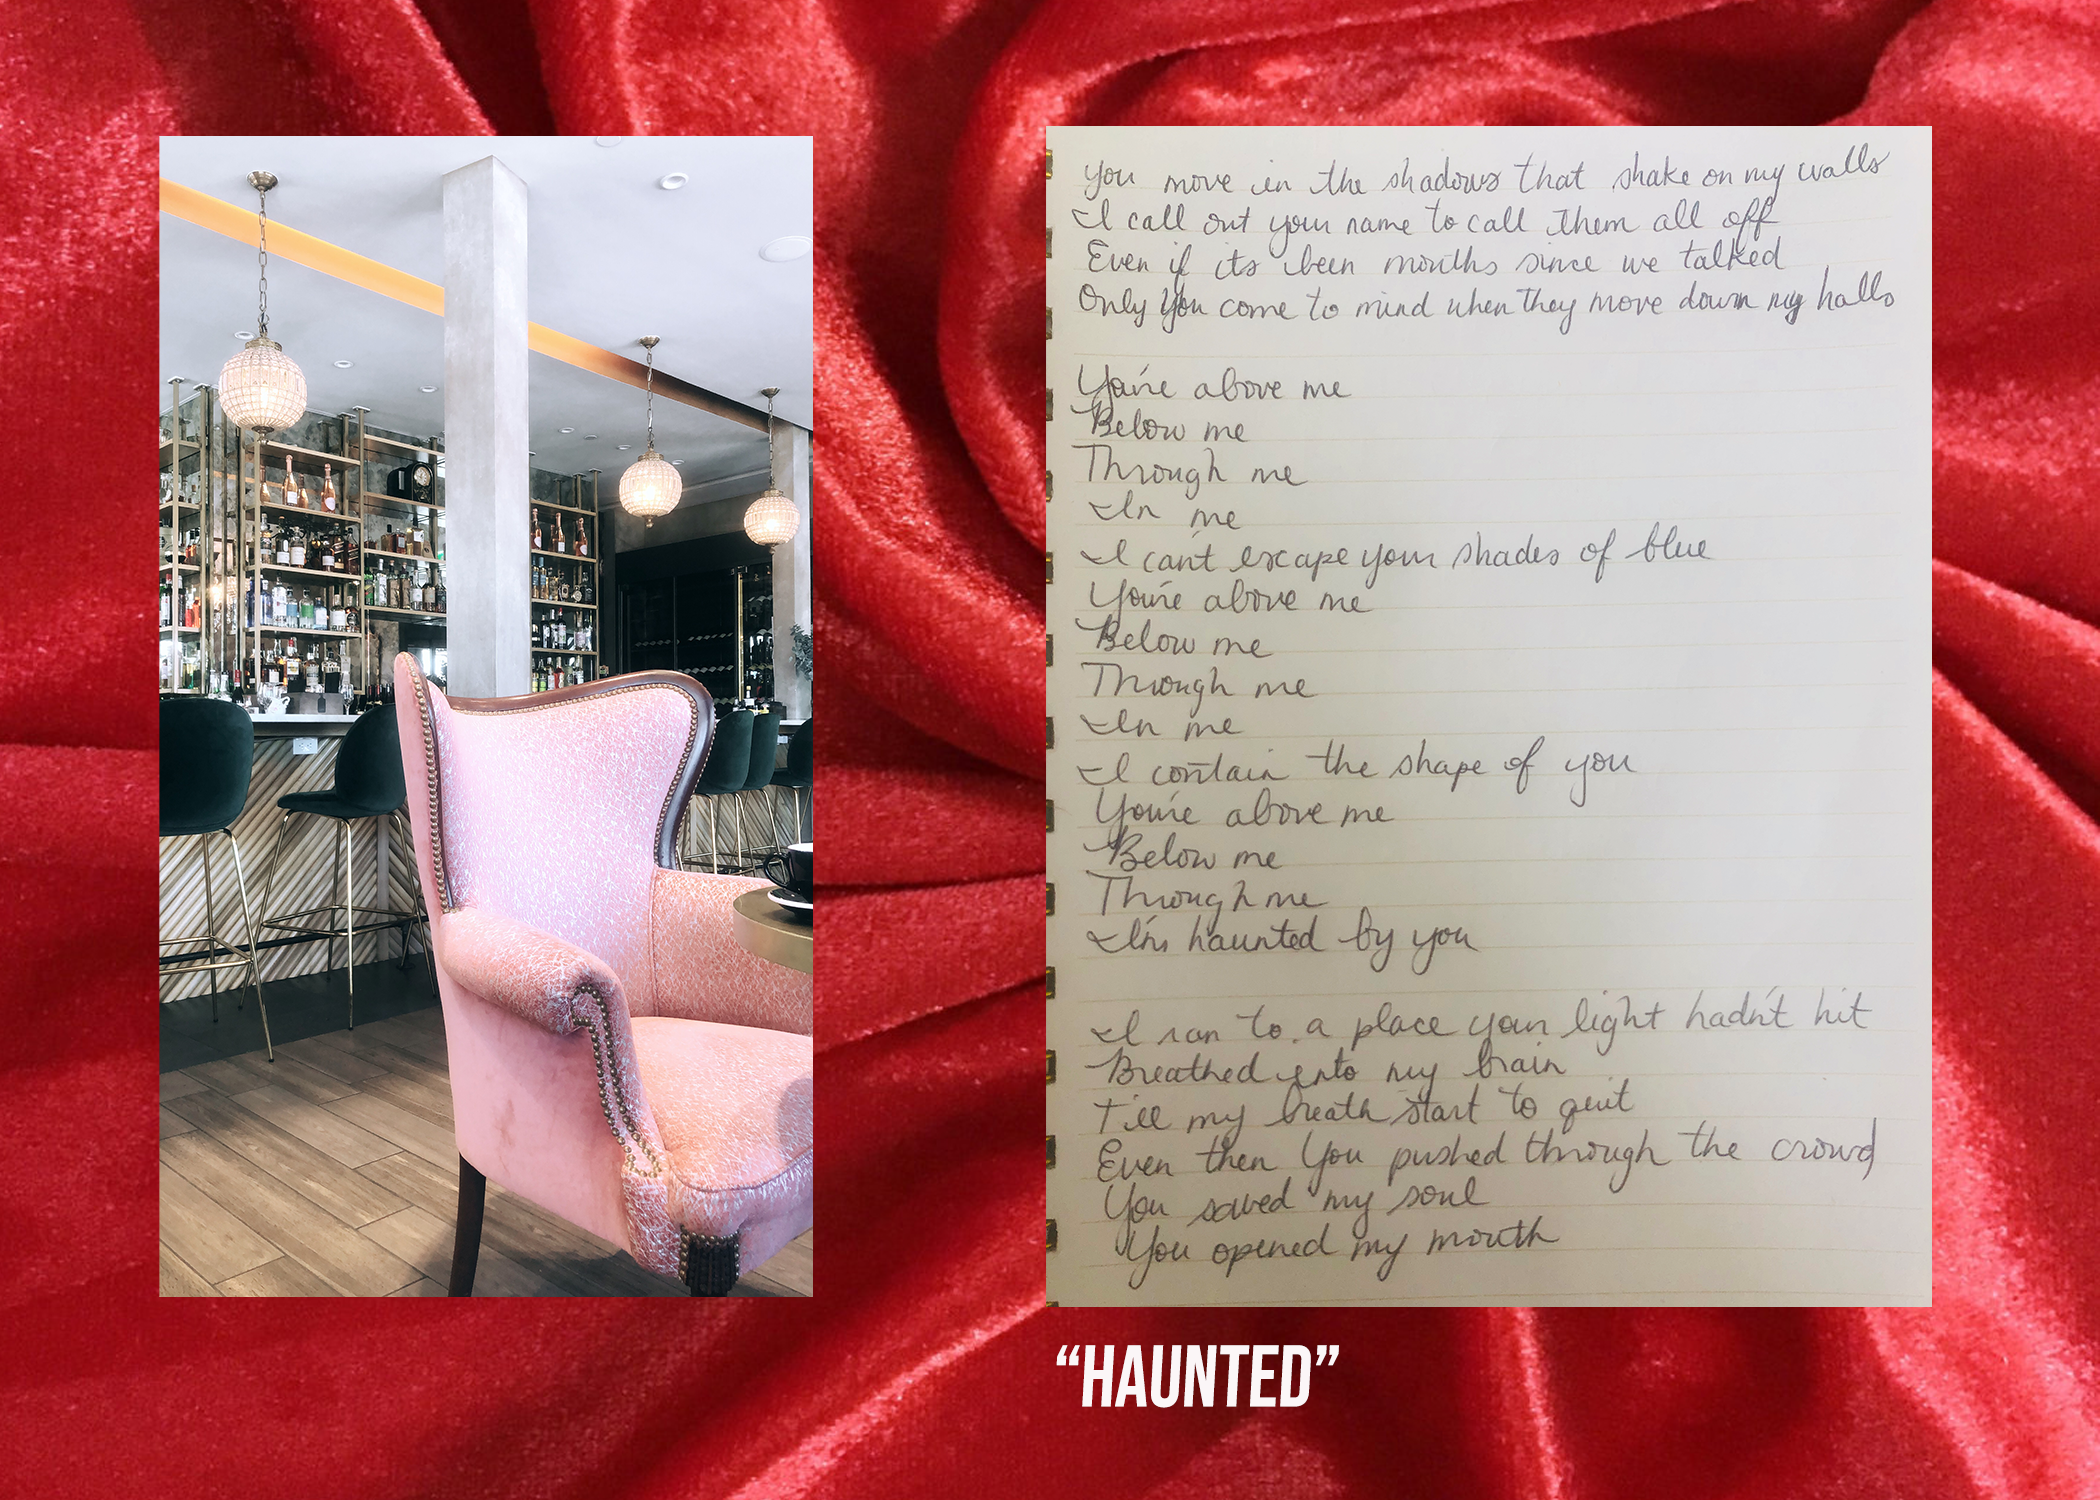 You move in the shadows that shake on my walls
I call out your name to call them all off
Even if its been months since we talked
Only you come to mind when they move down my halls
You're above me
Below me
Through me
In me
I can't escape your shades of blue
You're above me
Below me
Through me
In me
I contain the shape of you
You're above me
Below me
Through me
I'm haunted by you
I ran to a place your light hadn't hit
Breathed into my brain
Till my breath start to quit
Even then You pushed through the crowd
You saved my soul
You opened my mouth
“HAUNTED”